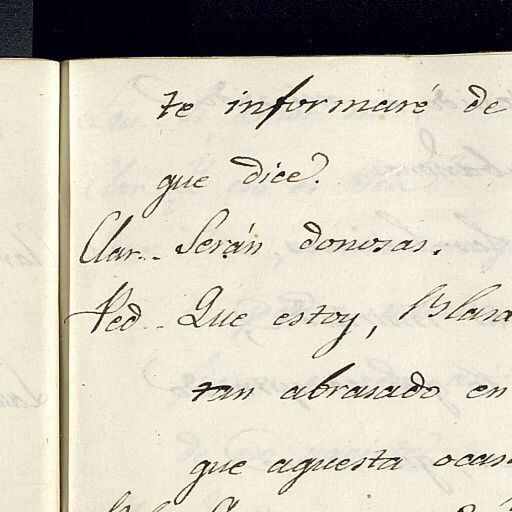 te informaré de
que dice.
Clar.. Serán donosas.
Ped.. Que estoy, Blasa
tan abrasado en
que aquesta ocas